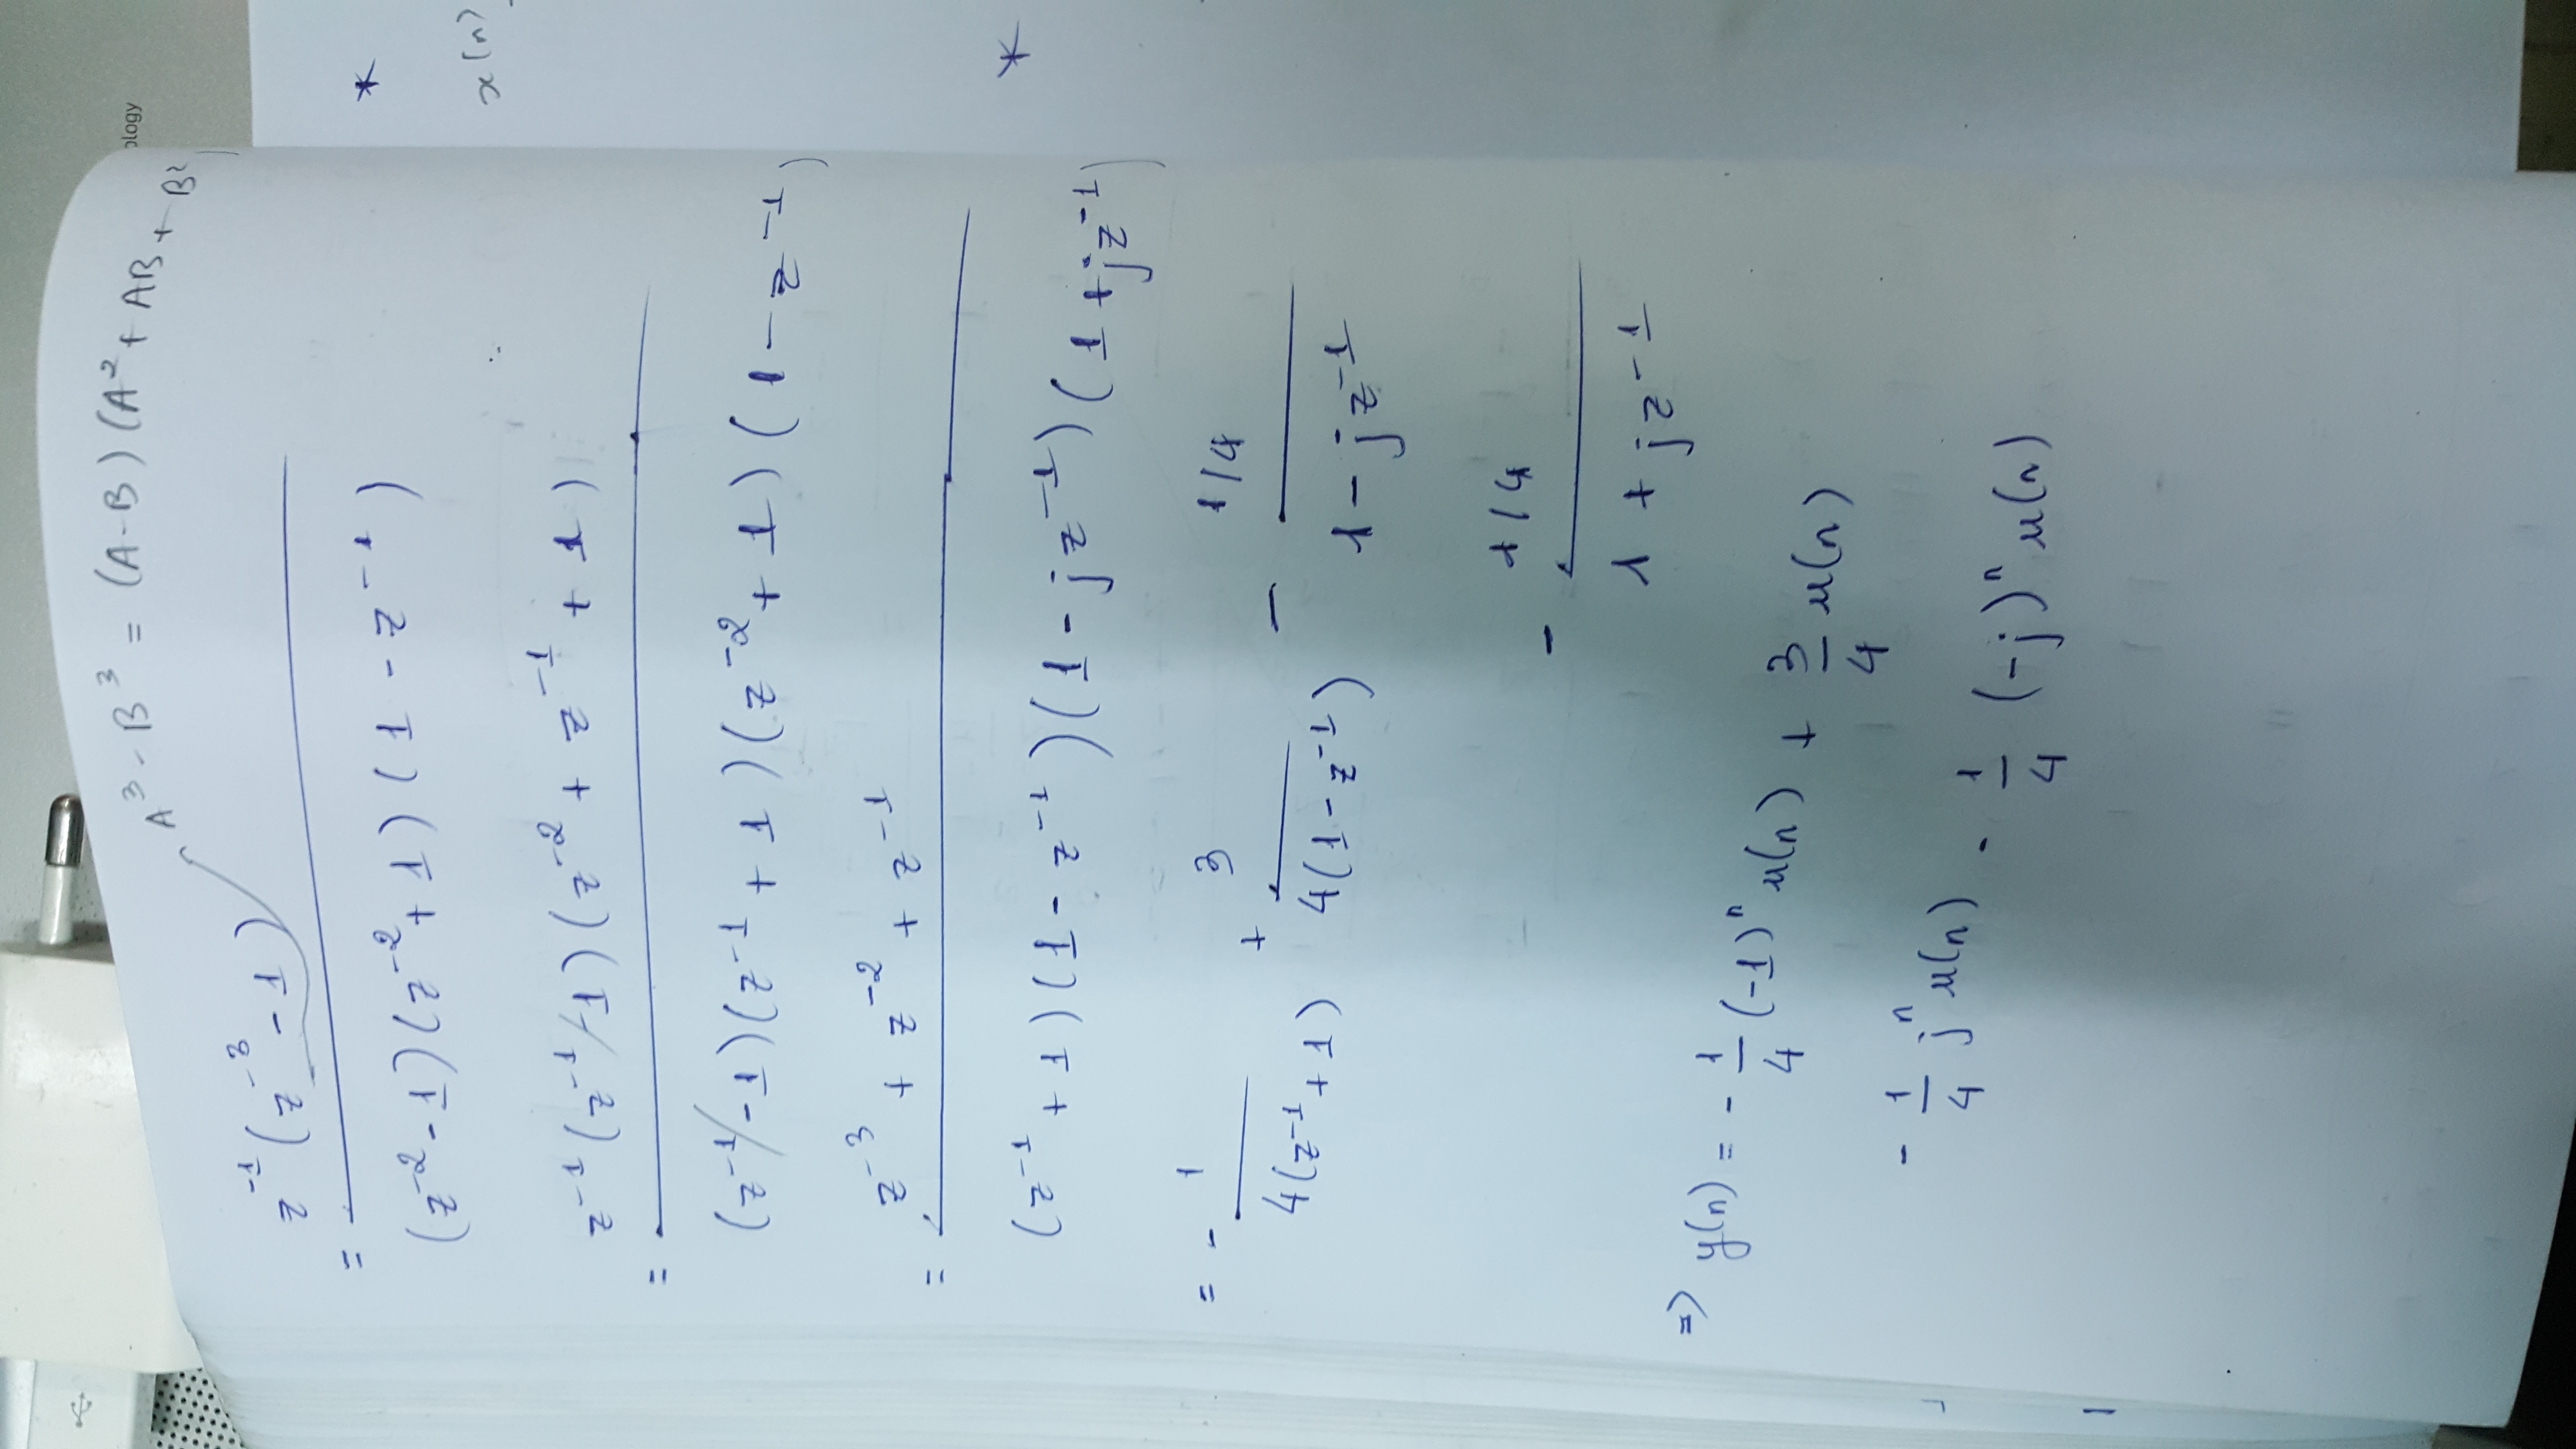 ology
*
x(n)
*
A³ - B³ = (A-B)(A² + AB + B²)
z⁻¹(z⁻³ - 1)
=
(z⁻² - 1)(z⁻² + 1)(1 - z⁻¹)
z⁻¹(z⁻¹ - 1)(z⁻² + z⁻¹ + 1)
=
(z⁻¹ - 1)(z⁻¹ + 1)(z⁻² + 1)(1 - z⁻¹)
z⁻³ + z⁻² + z⁻¹
=
(z⁻¹ + 1)(1 - z⁻¹)(1 - jz⁻¹)(1 + jz⁻¹)
= - 1/4(z⁻¹ + 1) + 3/4(1 - z⁻¹) - 1/4/1 - jz⁻¹
- 1/4/1 + jz⁻¹
=> y(n) = - 1/4 (-1)ⁿ u(n) + 3/4 u(n)
- 1/4 jⁿ u(n) - 1/4 (-j)ⁿ u(n)